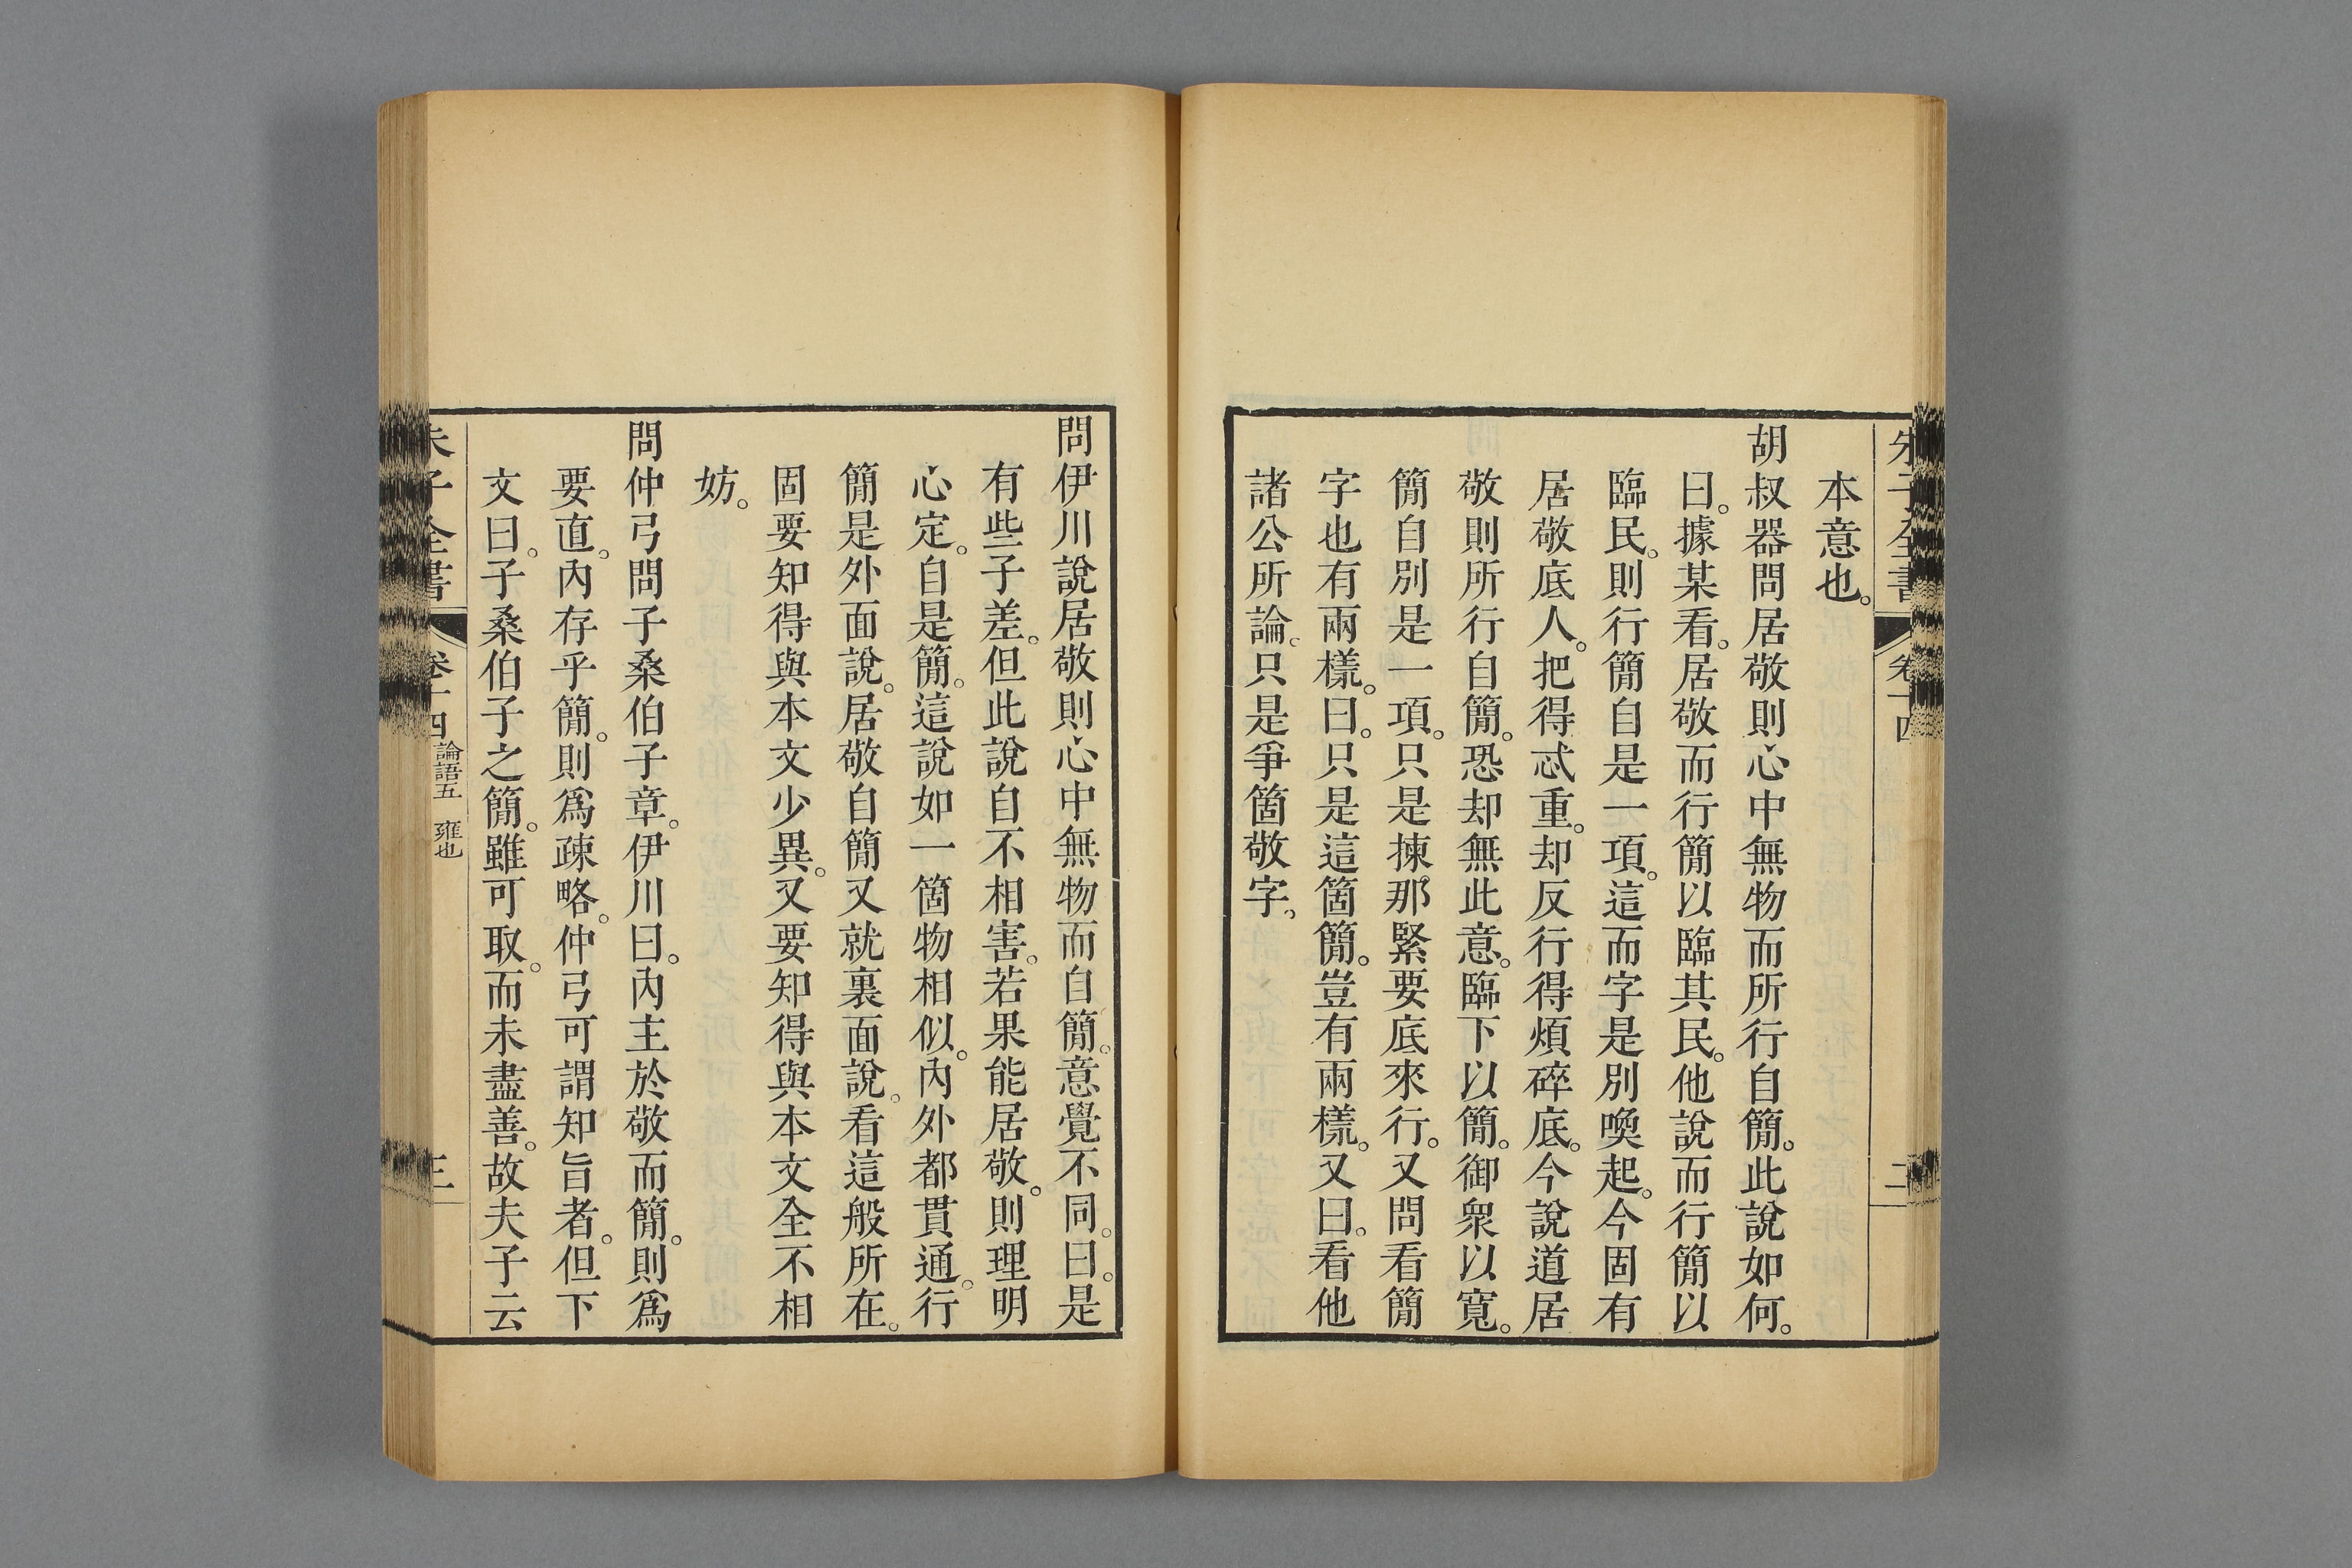 朱子全書 卷十四 二
本意也。
胡叔器問居敬則心中無物而所行自簡。此說如何。
曰。據某看。居敬而行簡以臨其民。他說而行簡以
臨民。則行簡自是一項。這而字是別喚起。今固有
居敬底人。把得忒重。却反行得煩碎底。今說道居
敬則所行自簡。恐却無此意。臨下以簡。御衆以寬。
簡自別是一項。只是揀那緊要底來行。又問看簡
字也有兩樣。曰。只是這箇簡。豈有兩樣。又曰。看他
諸公所論。只是爭箇敬字。
問伊川說居敬則心中無物而自簡。意覺不同。曰。是
有些子差。但此說自不相害。若果能居敬。則理明
心定。自是簡。這說如一箇物相似。內外都貫通。行
簡是外面說。居敬自簡又就裏面說。看這般所在。
固要知得與本文少異。又要知得與本文全不相
妨。
問仲弓問子桑伯子章。伊川曰。內主於敬而簡。則爲
要直。內存乎簡。則爲疎略。仲弓可謂知旨者。但下
文曰。子桑伯子之簡。雖可取。而未盡善。故夫子云
朱子全書 卷十四 論語五 雍也 三